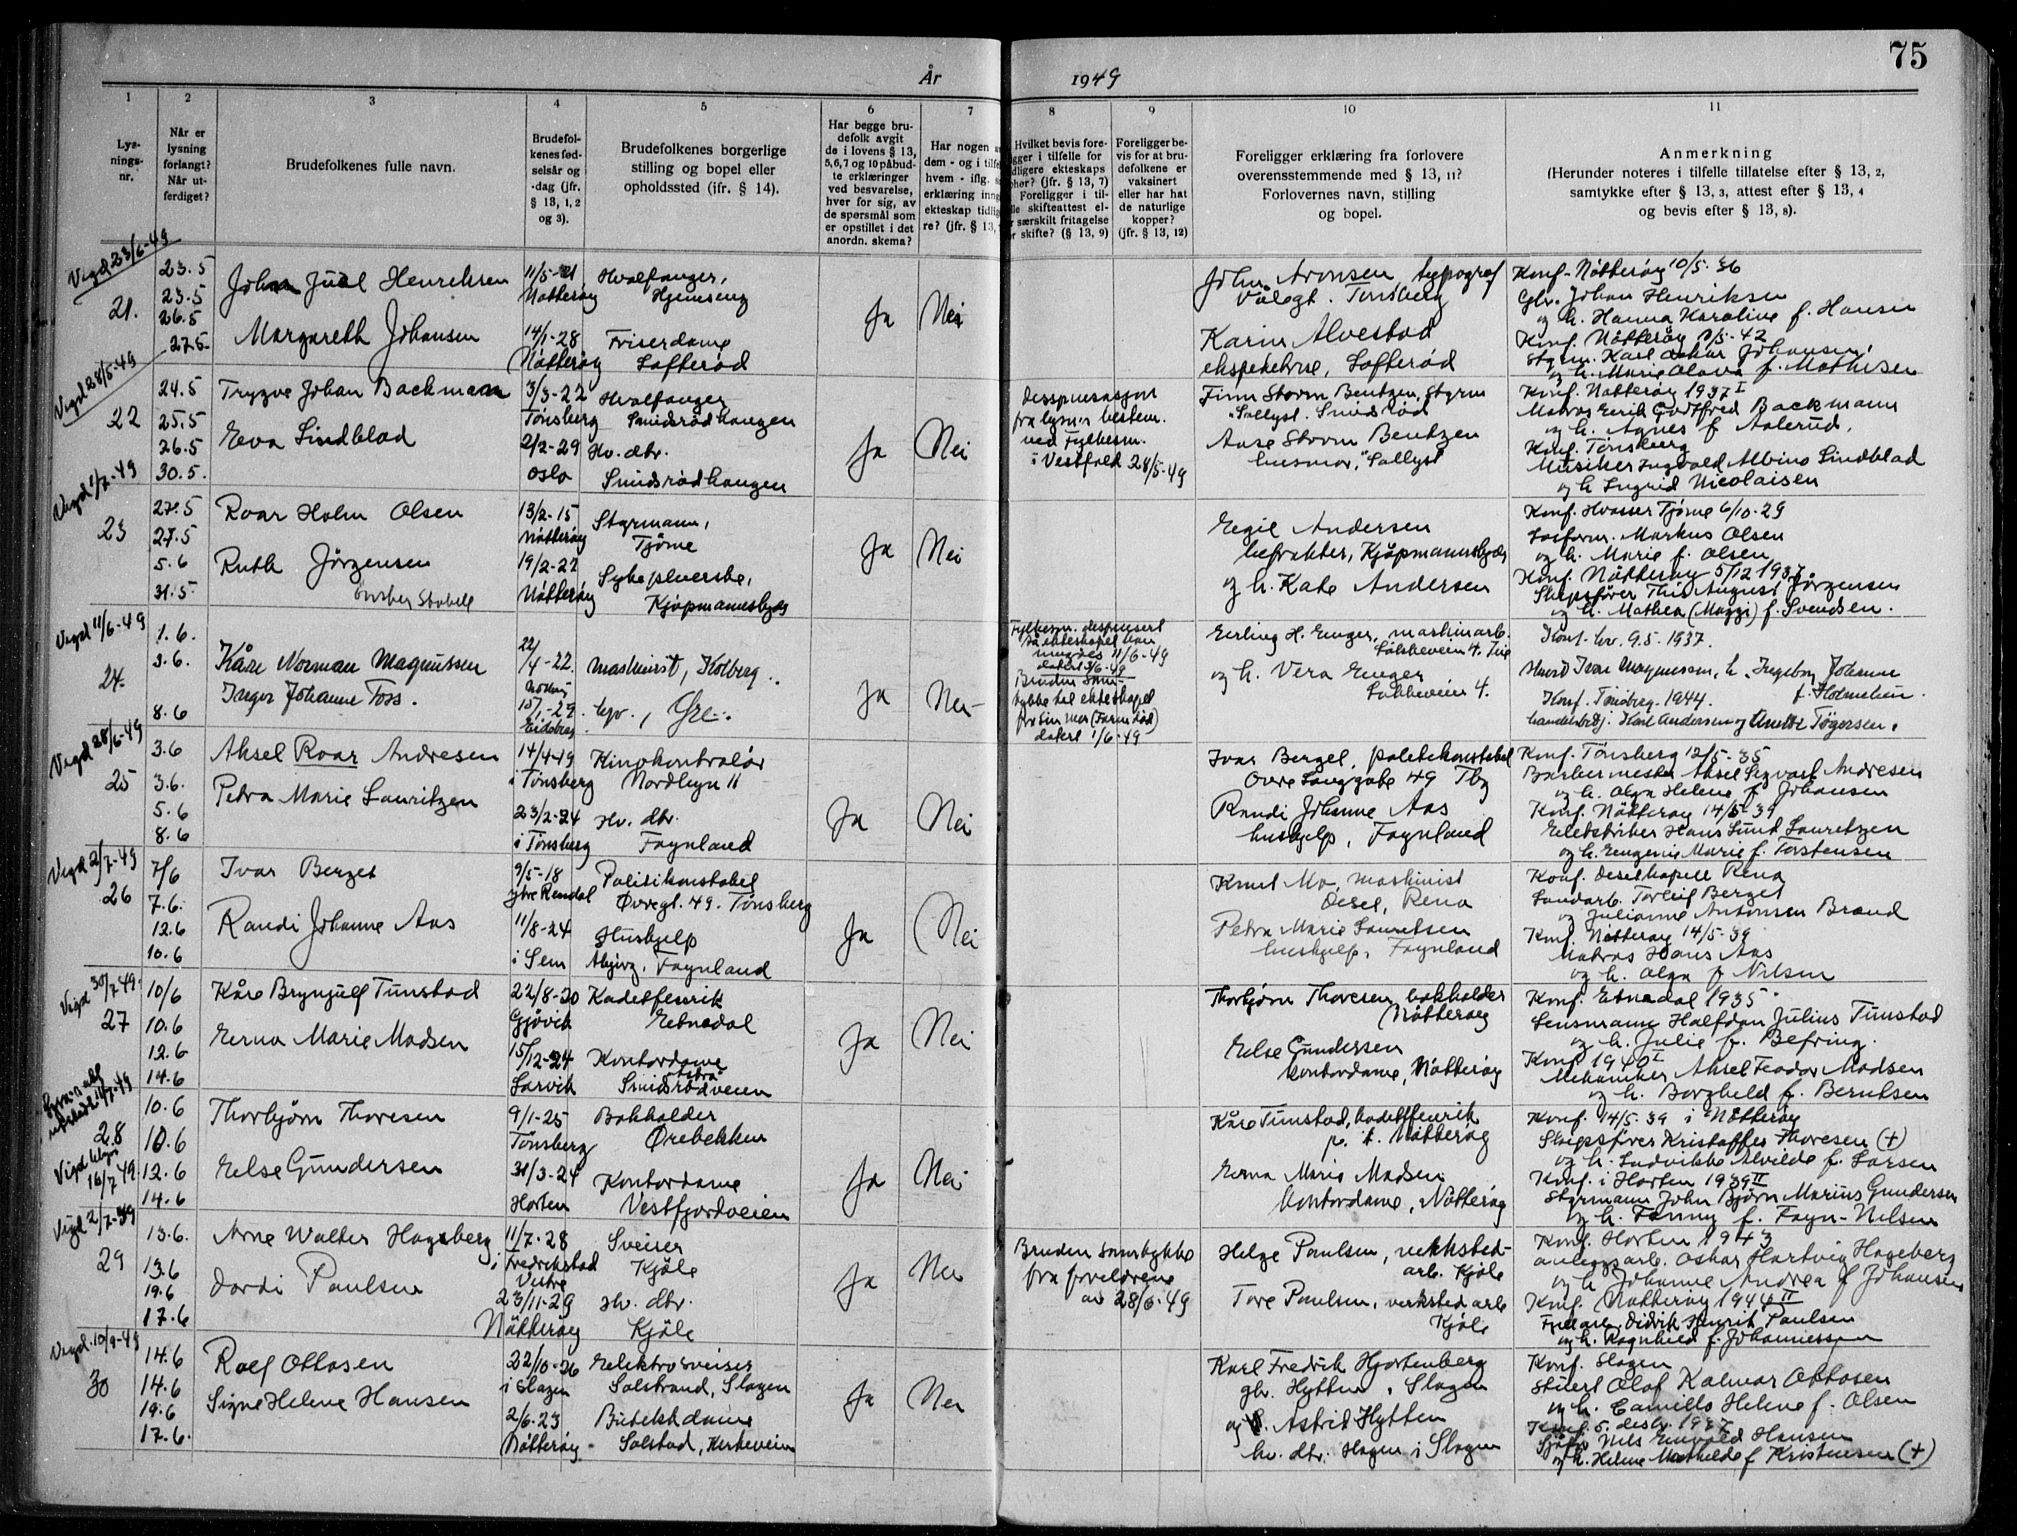 75
År 1949
1 2 3 4 5 6 7 8 9 10 11
Lys-
nings-
nr.
Når er
lysning
forlangt?
Når ut-
ferdiget?
Brudefolkenes fulle navn.
Brudefol-
kenes fød-
selsår og
-dag (jfr.
§ 13, 1, 2
og 3).
Brudefolkenes borgerlige
stilling og bopel eller
opholdssted (jfr. § 14).
Har begge bru-
defolk avgit
de i lovens § 13,
5, 6, 7 og 10 påbud-
te erklæringer
ved besvarelse,
hver for sig, av
de spørsmål som
er opstillet i det
anordn. skema?
Har nogen
dem - og i tilfe
hvem - iflg.
erklæring inng
ekteskap tidlig
re? (jfr. § 13,
Hvilket bevis fore-
gger i tilfelle for
dligere ekteskaps
phør? (jfr. § 13, 7)
Foreligger i til-
lle skifteattest el-
r særskilt fritagelse
or skifte? (§ 13, 9)
Foreligger be-
vis for at bru-
defolkene er
vaksinert
eller har hat
de naturlige
kopper?
(jfr. § 13, 12)
Foreligger erklæring fra forlovere
overensstemmende med § 13, 11?
Forlovernes navn, stilling
og bopel.
Anmerkning
(Herunder noteres i tilfelle tillatelse efter § 13, 2,
samtykke efter § 13, 3, attest efter § 13, 4
og bevis efter § 13, 8).
Vigd 23/6-49
21.
23.5
23.5
26.5
27.5
Johan Juel Henriksen
Margareth Johansen
11/5-21
Nøtterøy
14/1-28
Nøtterøy
Hvalfanger,
Hjemseng
Friserdame
Lofterød
Ja
Nei
John Aronsen, typograf
Vålegt. Tønsberg
Karin Alvestad
ekspeditrise, Lofterød
Konf. Nøtterøy 10/5-36
Gbr. Johan Henriksen
og h. Hanna Karoline f. Hansen
Konf. Nøtterøy
Styrm. Karl Oskar Johansen,
og h. Marie Olava f. Mathisen
Vigd 28/5-49
22
24.5
25.5
26.5
30.5.
Trygve Johan Backmann
Eva Lindblad
3/3-22
Tønsberg
2/2-29
Oslo
Hvalfanger
Smidsrødhaugen
Hv. dtr.
Smidsrødhaugen
Ja
Nei
Despensasjon
fra lysn.s bestem.
ved Fylkesm.
i Vestfold 28/5-49
Finn Storm Bentzen, Styrm
"Solbyst" Smidsrød
Aase Storm Bentzen
husmor, "Solbyst"
Konf. Nøtterøy 1937 I
Matros Erik Gotfred Backmann
og h. Agnes f. Aalerud.
Konf. Tønsberg
Musiker Ingvald Albino Lindblad
og h. Ingrid Nicolaisen
Vigd 1/7-49
23
27.5
27.5
5.6
31.5
Roar Holm Olsen
Ruth Jørgensen
13/2-15
Nøtterøy
19/2-22
Nøtterøy
Styrmann,
Tjøme
Sykepleierske,
Kjøpmannskjær
Ja
Nei
Egil Andersen
befrakter, Kjøpmannskjær
og h. Kate Andersen
Konf. Hvasser Tjøme 6/10-29
Losform. Markus Olsen
og h. Marie f. Olsen
Konf. Nøtterøy 5/12 1937.
Skipsfører This August Jørgensen
og h. Mathea (Maggi) f. Svendsen.
Vigd 11/6-49
24.
1.6.
3.6.
8.6
Kåre Norman Magnussen
Inger Johanne Foss.
22/4-22
15/1-29.
Eidsberg
Maskinist, Kolberg.
Ja
Nei
Fylkesm. despensert
datert 3/6-49
Bruden sam-
tykke til ekteskapet
fra sin mor (Farm død)
datert 1/6-49
Erling H. Enger, maskinarb.
og h. Vera Enger
Konf. hv. 9.5.1937.
Konf. Tønsberg. 1944.
Vigd 28/6-49
25
3.6
3.6.
5.6
8.6
Aksel Roar Andresen
Petra Marie Lauritzen
14/4-19
i Tønsberg
23/2-24
i Tønsberg
Kinokontrolør
Nordbyn 11
Hv. dtr.
Føynland
Ja
Nei
Ivar Berget, politikonstabel
Øvre Langgate 49 Tbg
Randi Johanne Aas
hushjelp, Føynland
Konf. Tønsberg 12/5-35
Barbermester Aksel Sigvart Andresen
og h. Olga Helene f. Johansen
Konf. Nøtterøy 14/5-39
Hans Lund Lauritzen
og h. Eugenie Marie f. Torstensen
Vigd 2/7-49
26
7/6
7.6.
12.6
10.6
Ivar Berget
Randi Johanne Aas
9/5-18
Ytre Rendal
11/8-24
i Sem
Politikonstabel
Øvregt. 49. Tønsberg
Hushjelp
Føynland
Ja
Nei
Knut Mo, maskinist
Deset, Rena
Petra Marie Lauritsen
hushjelp, Føynland
Konf. Deset kapell Rena
Landarb. Torleif Berget
og Julianne Antonsen Brand
Konf. Nøtterøy 14/5-39
Matros Hans Aas
og h. Olga f. Nilsen
Vigd 30/7-49.
27
10/6
10.6
12.6
14.6
Kåre Brynjulf Tunstad
Erna Marie Madsen
22/8-20
Gjøvik
15/12-24
Larvik
Kadettfenrik
Etnedal
Kontordame
Smidsrødveien
Ja
Nei
Thorbjørn Thoresen, bokholder
Nøtterøy
Else Gundersen
kontordame, Nøtterøy
Konf. Etnedal 1935
Lensmann Halfdan Julius Tunstad
og h. Julie f. Befring.
Konf. 1940 I
Mekaniker Aksel Feodor Madsen
og h. Borghild f. Berntsen
28
Vigd
16/7 49
10.6
10.6
12.6
14.6
Thorbjørn Thoresen
Else Gundersen
9/1-25
Tønsberg
31/3-24
Horten
Bokholder
Ørebekken
Kontordame
Vestfjordveien
Ja
Nei
Kåre Tunstad, kadettfenrik
p. t. Nøtterøy
Erna Marie Madsen
kontordame, Nøtterøy
Konf. 14/5.39 i Nøtterøy
Skipsfører Kristoffer Thoresen (+)
og h. Ludvikke Alvilde f. Larsen
Konf. i Horten 1939 II
Styrmann John Bjørn Marius Gundersen
og h. Fanny f. Føyn-Nilsen
Vigd 2/7-39
29
13.6.
13.6
19.6
17.6
Arne Walter Hageberg
Dordi Paulsen
11/7-28
i Fredrikstad
Vestre
23/11-29
Nøtterøy
Sveiser
Kjøle
Hv. dtr.
Kjøle
Ja
Nei
Bruden samtykke
fra foreldrene
av 28/6-49
Helge Paulsen, verksted-
arb. Kjøle
Tore Paulsen, verkstedarb
Kjøle
Konf. Horten 1943
anleggsarb. Oskar Hartvig Hageberg
og h. Johanne Andrea f. Johansen
Konf. Nøtterøy 1944 II
Didrik Henrik Paulsen
og h. Ragnhild f. Johannessen
Vigd. 10/9-49
30
14.6
14.6
19.6
17.6.
Rolf Ottosen
Signe Helene Hansen
22/10-26
i Slagen
2/6-23
Nøtterøy
Elektrosveiser
Solstrand, Slagen
Butikkdame
Solstad, Kirkeveien
Ja
Nei
Karl Fredrik Hjortenberg
gbr. Hytten, Slagen
og Astrid Hytten
hv. dtr. Hagen i Slagen
Konf. Slagen
Stuert Olaf Kalmar Ottosen
og h. Camilla Helene f. Olsen
Konf. 5. desbr. 1937
Nils Enevold Hansen
og h. Helene Mathilde f. Kristensen (+)